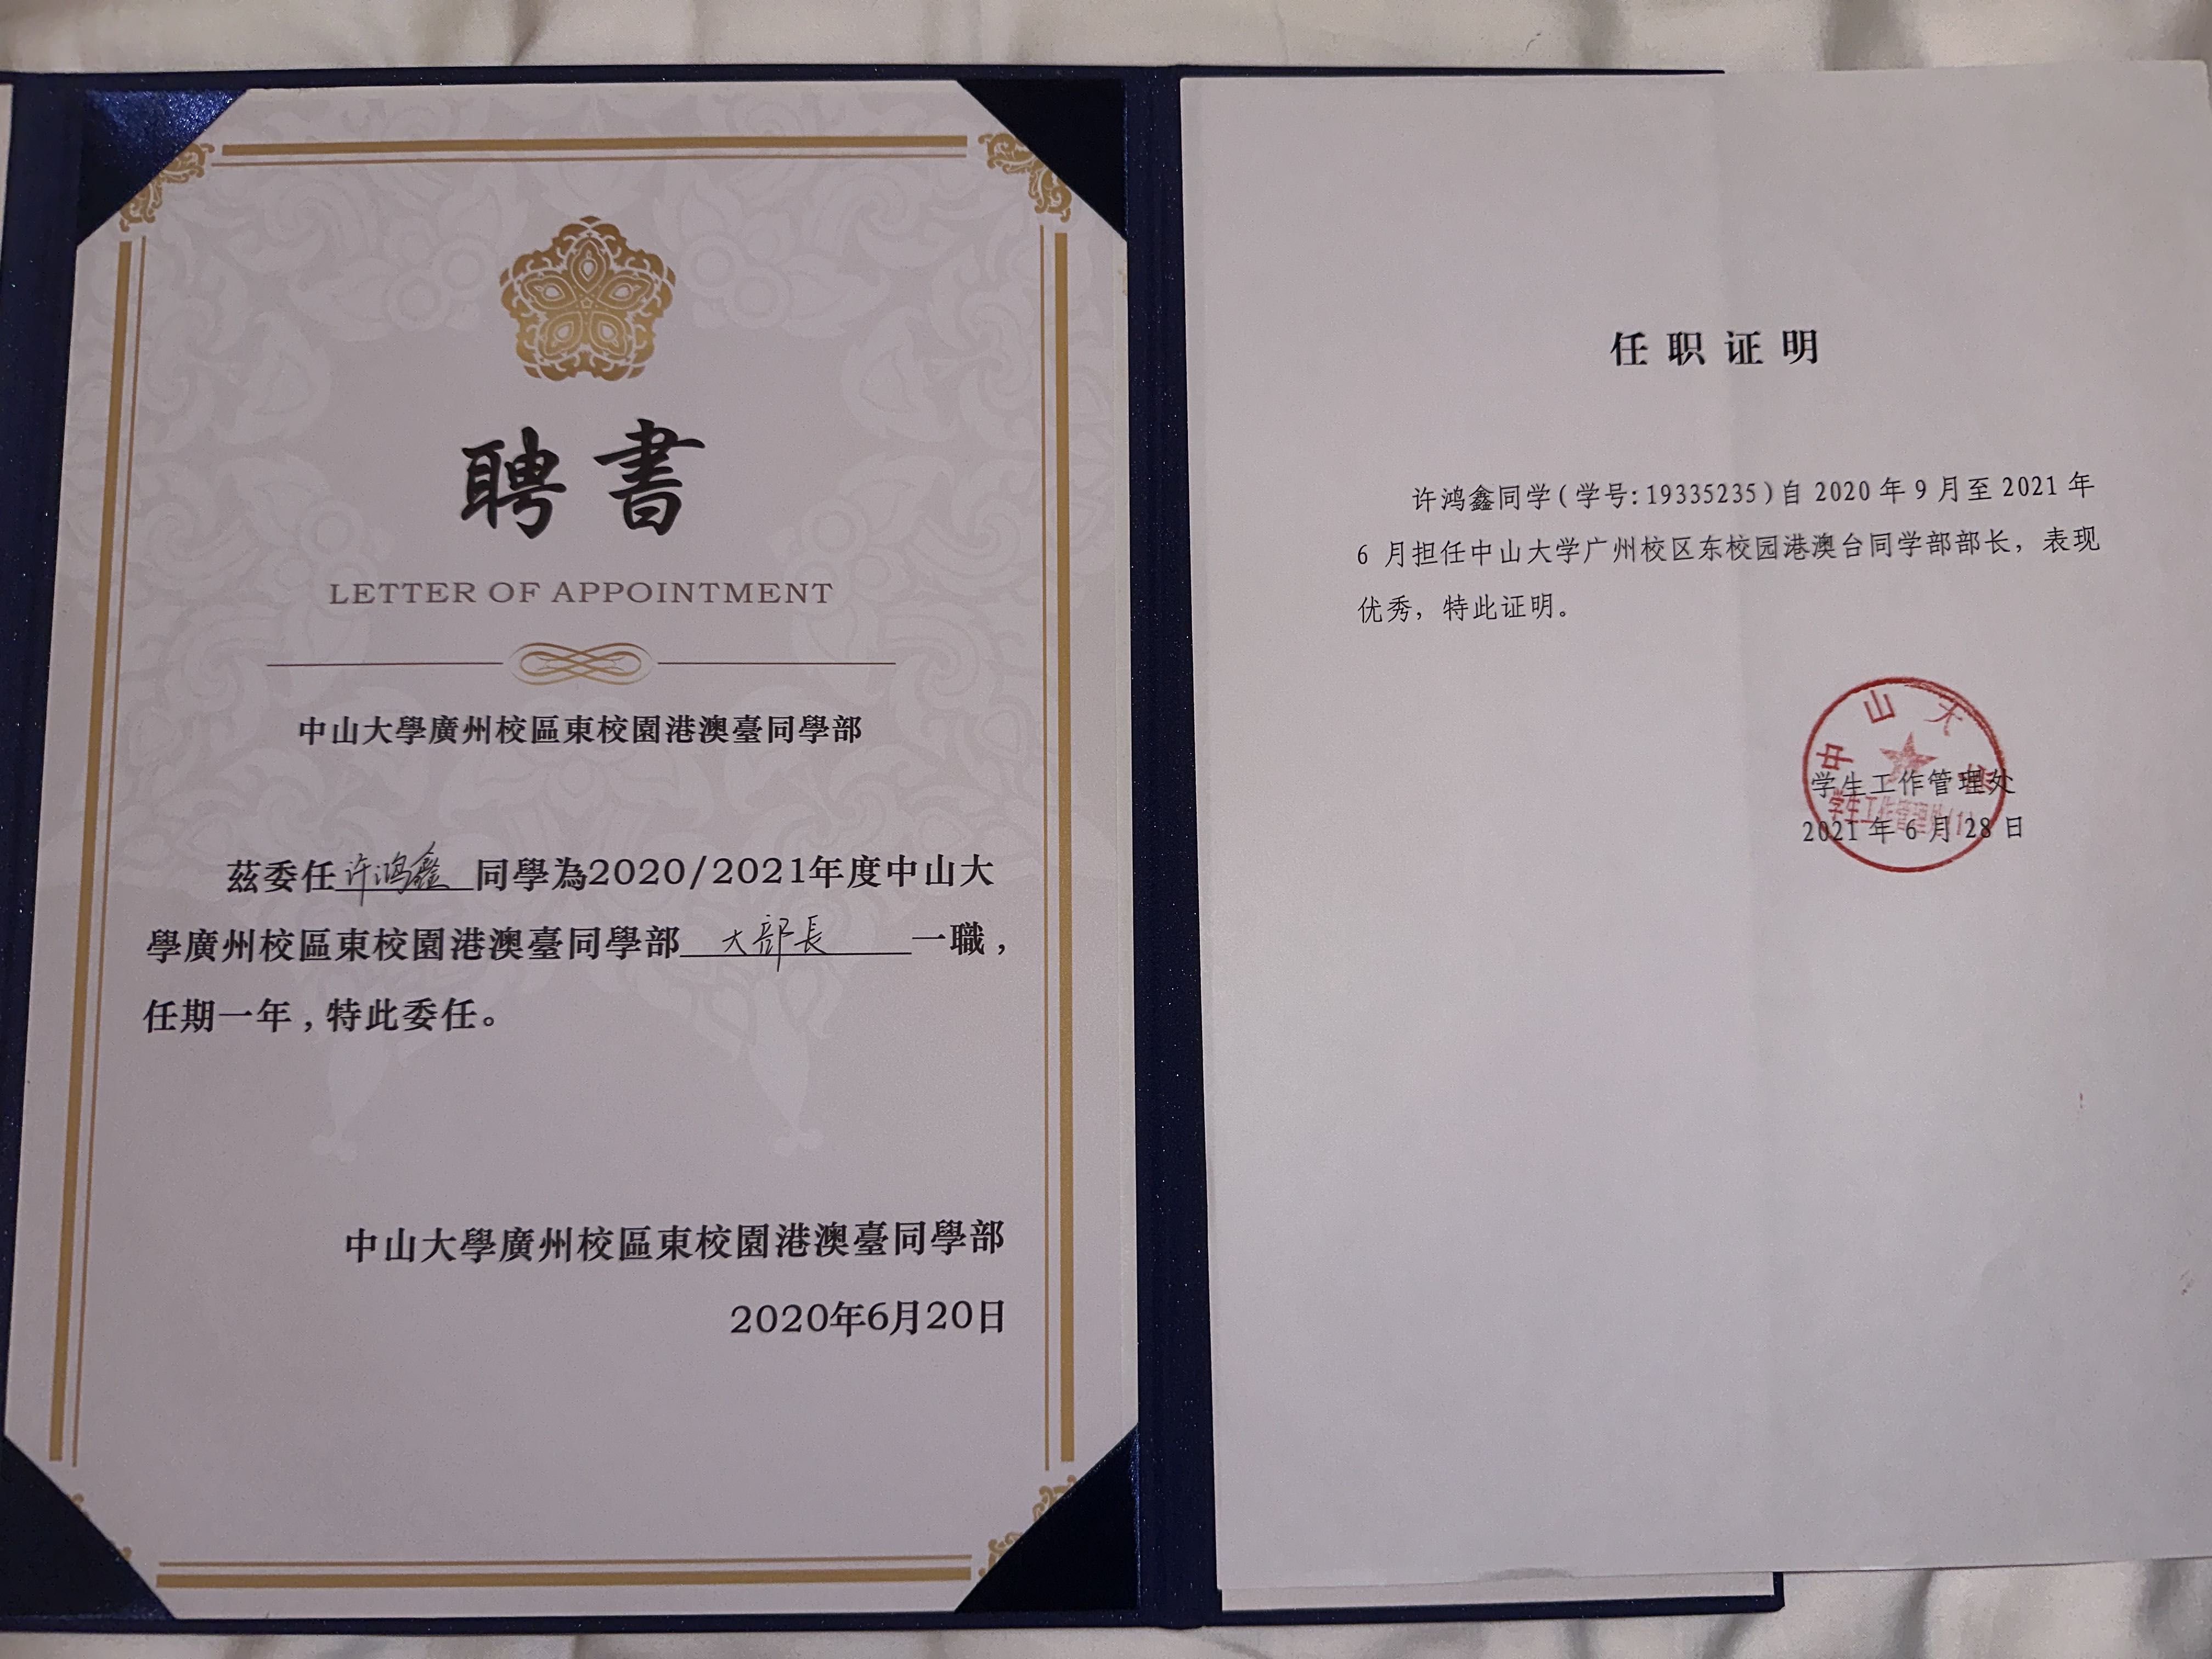 聘書
LETTER OF APPOINTMENT
中山大學廣州校區東校園港澳臺同學部
茲委任许鸿鑫同學為2020/2021年度中山大
學廣州校區東校園港澳臺同學部大部長一職，
任期一年，特此委任。
中山大學廣州校區東校園港澳臺同學部
2020年6月20日
任职证明
许鸿鑫同学(学号:19335235)自 2020 年 9 月至 2021 年
6 月担任中山大学广州校区东校园港澳台同学部部长，表现
优秀，特此证明。
中山大学
学生工作管理处
学生工作管理处(1)
2021 年 6 月 28 日